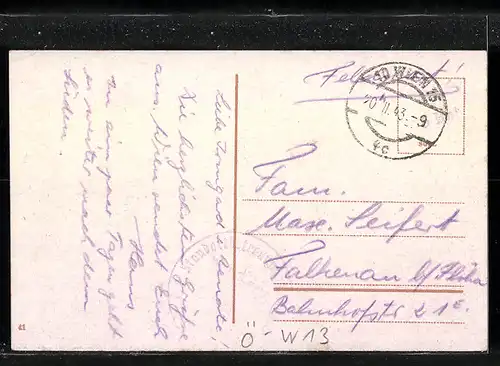 Liebe Irmgard u. Renate!
Die herzlichsten Grüße
aus Wien sendet Euch
Hans
In ein paar Tagen geht
es weiter nach dem
Süden.
Feldpost
40 WIEN 75
20. II. 43.-9
4c
Fam.
Max. Seifert
Falkenau b/ Flöha
Bahnhofstr 21 E.
41
Ö-W13